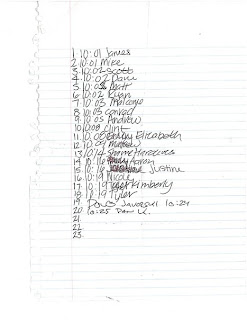 1 10:01 James
2 10:01 Mike
3 10:02 Scott
4 10:02 Dave
5 10:03
6 10:02 Ryan
7 10:03
8 10:03 Conrad
9 10:05 Andrew
10 10:08 Clint
11 10:08 Elizabeth
12 10:09 Mathew
13 10:14
14 10:16 Aaron
15 10:16 Justine
16 10:19 Nicole
17 10:19 Kimberly
18 10:19 Tyler
19 10:24
20 10:25 Dan
21
22
23